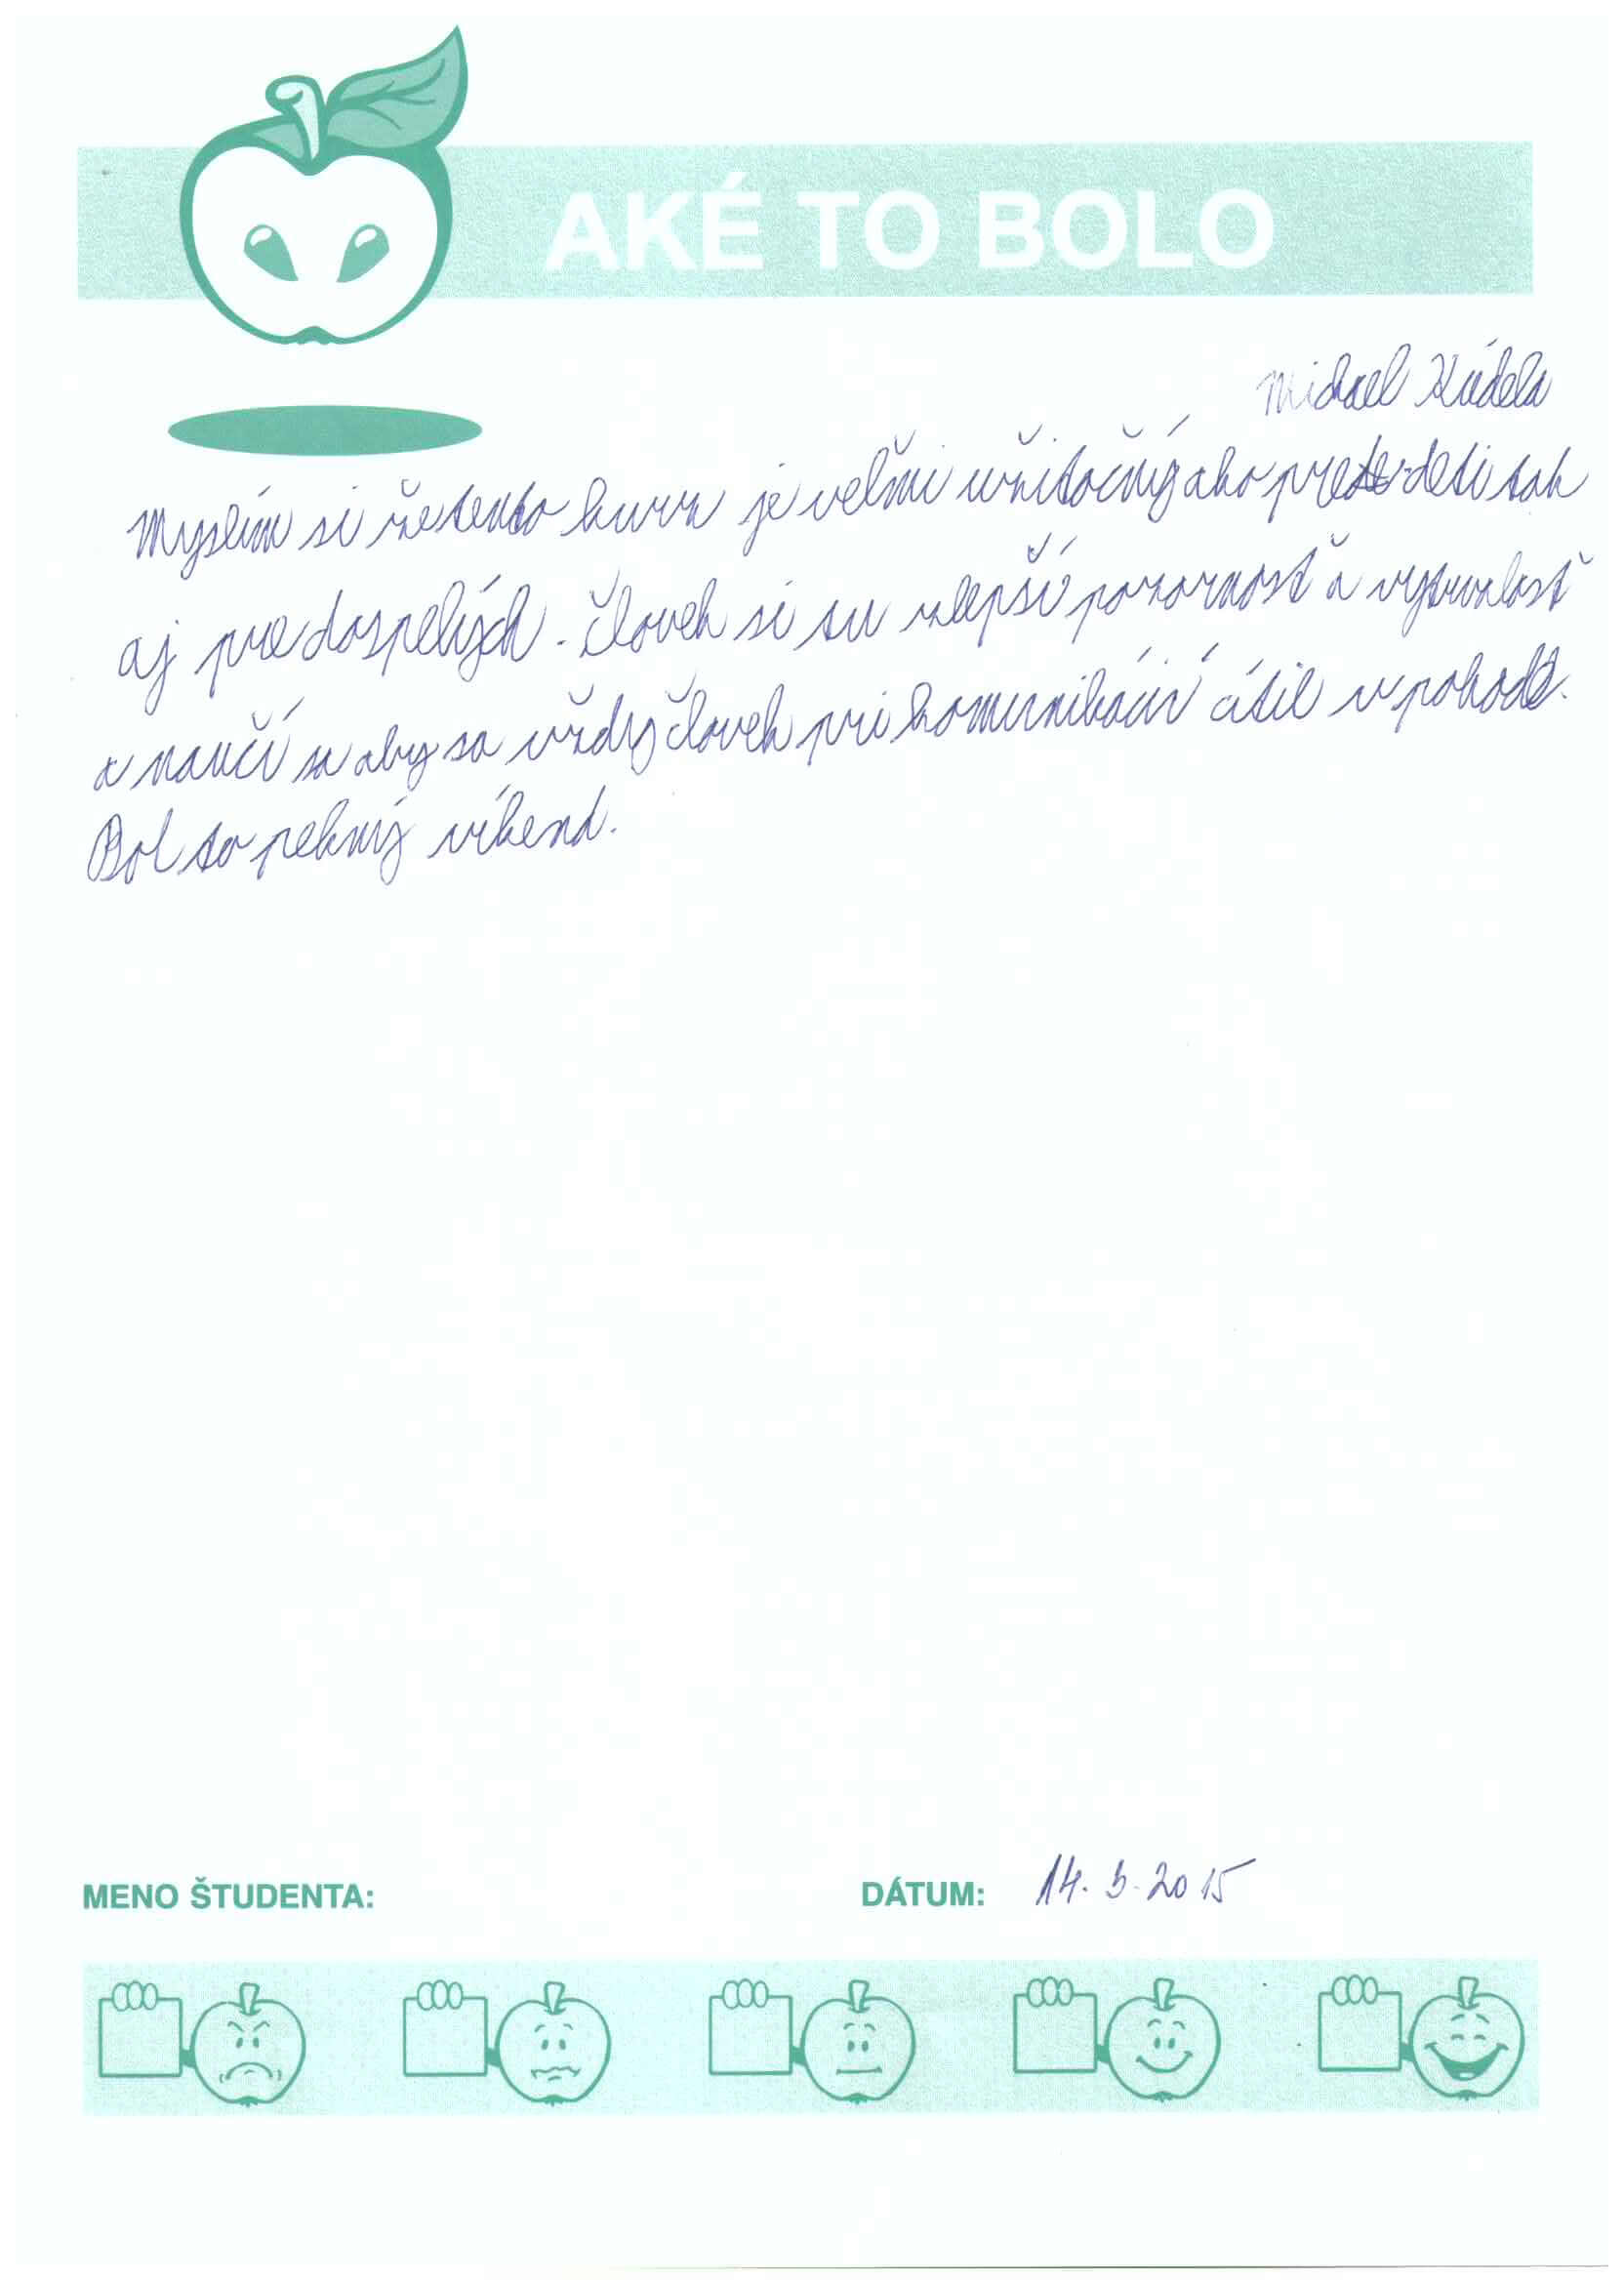 AKÉ TO BOLO
Michael Kúdela
Myslím si že tento kurz je veľmi užitočný ako pre deti tak
aj pre dospelých. Človek si tu zlepší pozornosť a vytrvalosť
a naučí sa aby sa vždy človek pri komunikácií cítil v pohode.
Bol to pekný víkend.
MENO ŠTUDENTA: DÁTUM: 14.3.2015